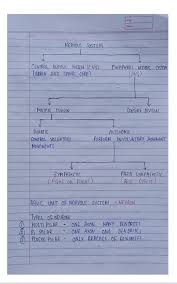 NERVOUS SYSTEM
CENTRAL NERVOUS SYSTEM (CNS) PERIPHERAL NERVOUS SYSTEM
(BRAIN AND SPINAL CORD) (PNS)
DIVISION SENSORY DIVISION
SOMATIC AUTONOMIC
CONTROL VOLUNTARY PERFORM INVOLUNTARY MOVEMENT
MOVEMENTS
SYMPATHETIC PARA SYMPATHETIC
(FIGHT OR FLIGHT)
BASIC UNIT OF NERVOUS SYSTEM - NEURON
TYPES OF NEURON
① MULTI POLAR - ONE AXON MANY DENDRITES
② BI POLAR - ONE AXON ONE DENDRITE
③ - ONLY